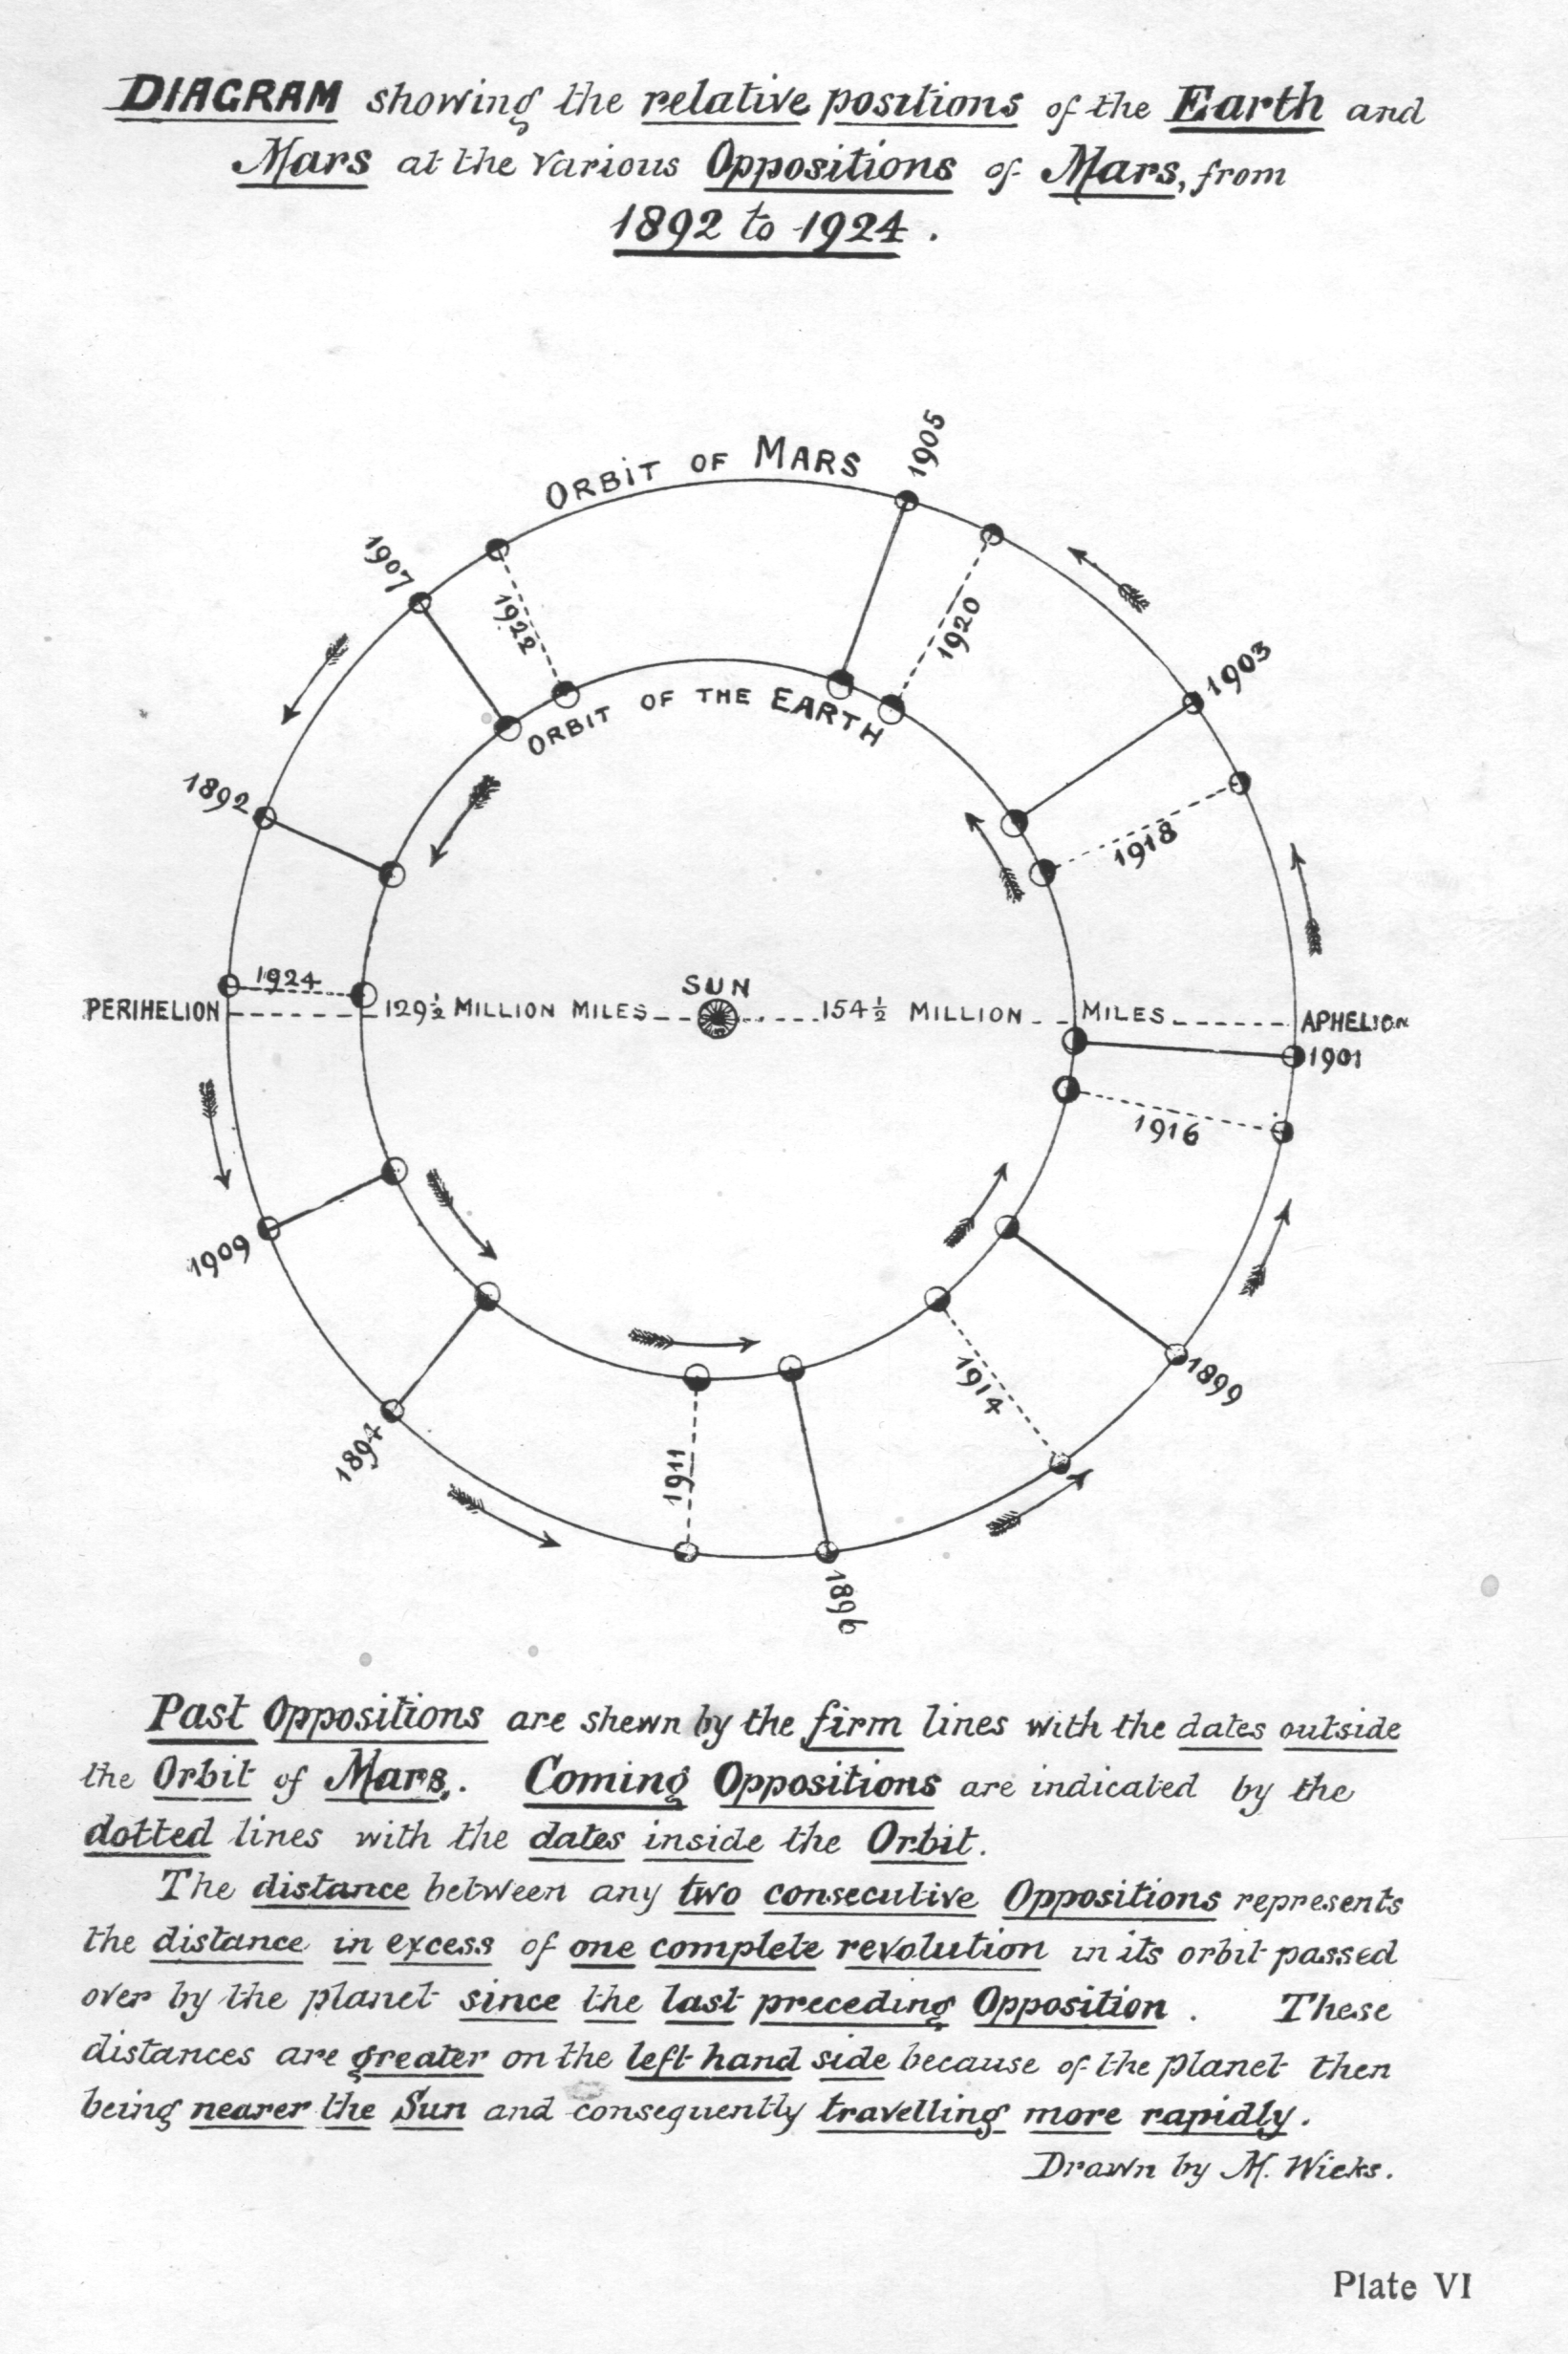 DIAGRAM showing the relative positions of the Earth and
Mars at the various Oppositions of Mars, from
1892 to 1924.
ORBIT OF MARS
1905
1907
1922
1920
1903
ORBIT OF THE EARTH
1892
1918
1924
SUN
PERIHELION
129½ MILLION MILES
154½ MILLION MILES
APHELION
1901
1916
1909
1899
1914
1894
1911
1896
Past Oppositions are shewn by the firm lines with the dates outside
the Orbit of Mars,. Coming Oppositions are indicated by the
dotted lines with the dates inside the Orbit.
The distance between any two consecutive Oppositions represents
the distance in excess of one complete revolution in its orbit passed
over by the planet since the last preceding Opposition. These
distances are greater on the left hand side because of the planet then
being nearer the Sun and consequently travelling more rapidly.
Drawn by M. Wicks.
Plate VI